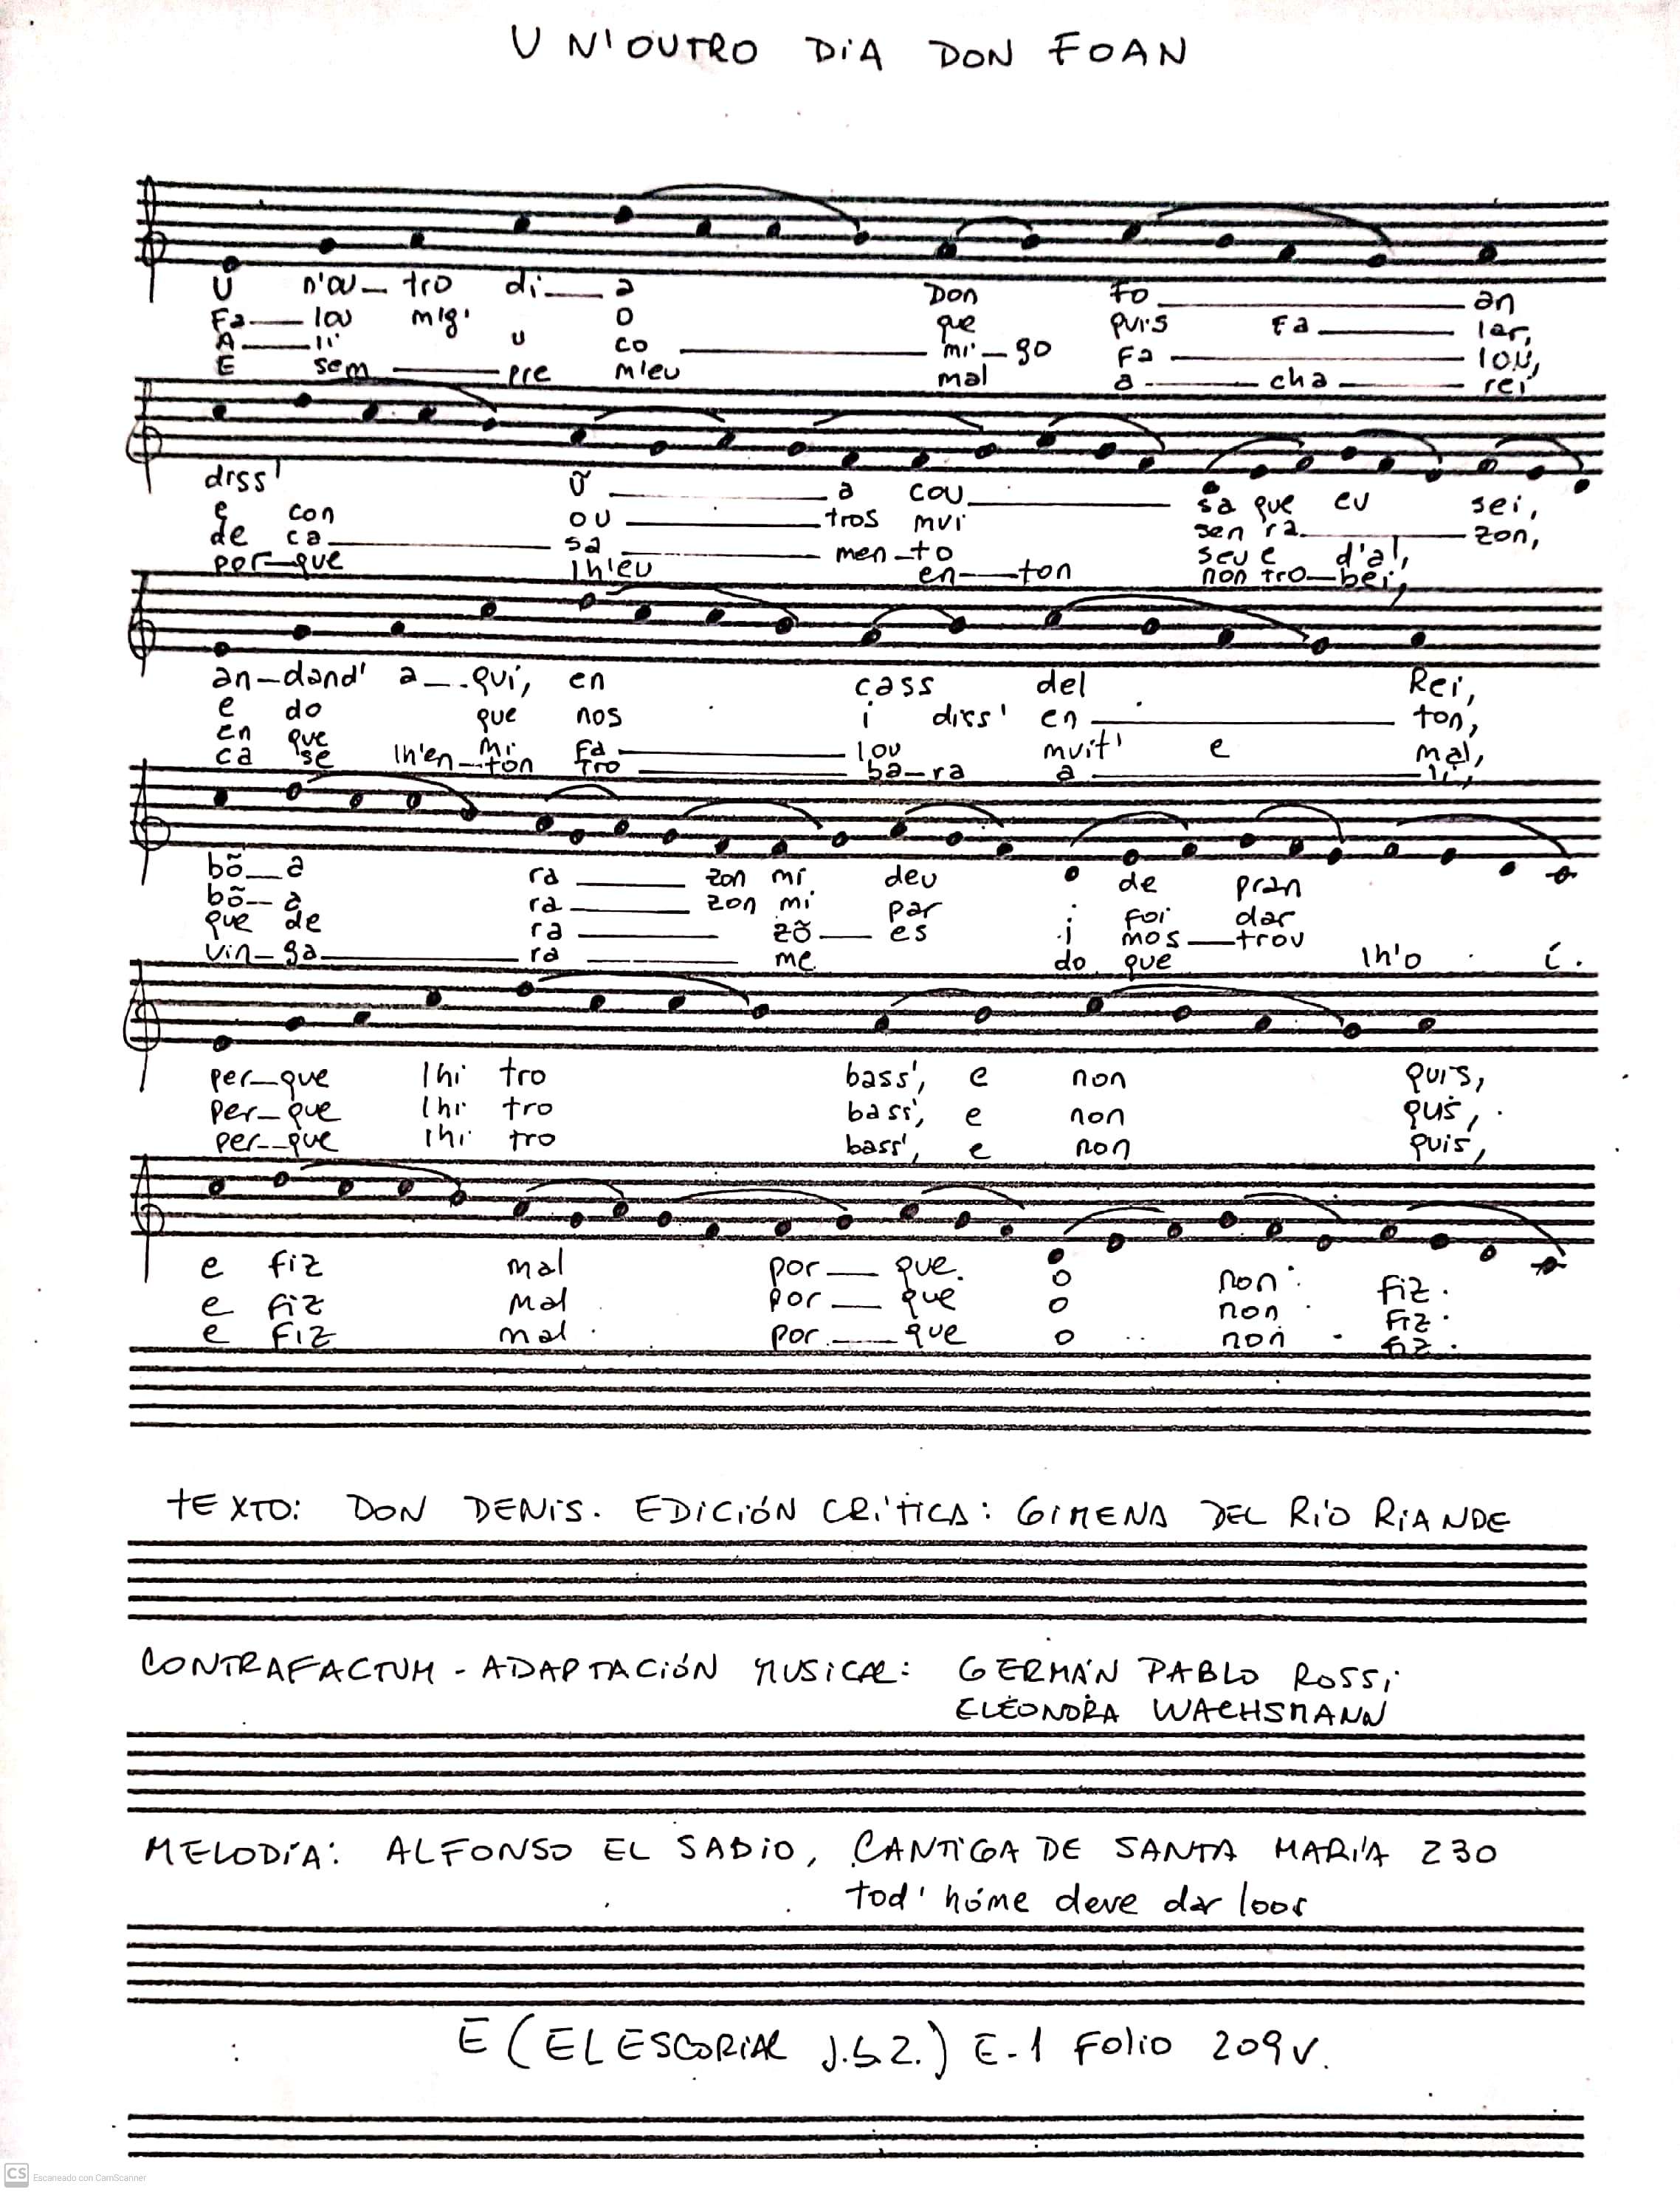 U N'OUTRO DIA DON FOAN
U n'ou_ tro di__ a Don Fo ____ an
Fa__ lou mig' o que quis Fa ____ lar,
A__ li u co ____ mi_go Fa ____ lou,
E sem ____ pre m'eu mal a ____ cha ____ rei
diss' ũ ____ a cou ____ sa que eu sei,
e con ou ____ tros mui sen ra ____ zon,
de ca ____ sa ____ men_to seu e d'al,
por_que lh'eu en__ton non tro_bei,
an_dand' a_qui, en cass del Rei,
e do que nos i diss' en ____ ton,
en que mi Fa ____ lou muit' e mal,
ca se lh'en_ton tro ____ ba_ra a ____ li,
bõ__a ra ____ zon mi deu de pran
bõ__a ra ____ zon mi par i foi dar
que de ra ____ zõ__ es i mos__trou
vin_ga ____ ra ____ me do que lh'o i.
per_que lhi tro bass', e non quis,
per_que lhi tro bass', e non quis,
per_que lhi tro bass', e non quis,
e fiz mal por__ que o non fiz.
e fiz mal por__ que o non fiz.
e fiz mal por__ que o non fiz.
TEXTO: DON DENIS. EDICIÓN CRÍTICA: GIMENA DEL RÍO RIANDE
CONTRAFACTUM - ADAPTACIÓN MUSICAL: GERMÁN PABLO ROSSI
ELEONORA WACHSMANN
MELODÍA: ALFONSO EL SABIO, CANTIGA DE SANTA MARÍA 230
tod' hóme deve dar loor
E (EL ESCORIAL J.b.2.) E-1 Folio 209v.
CS Escaneado con CamScanner